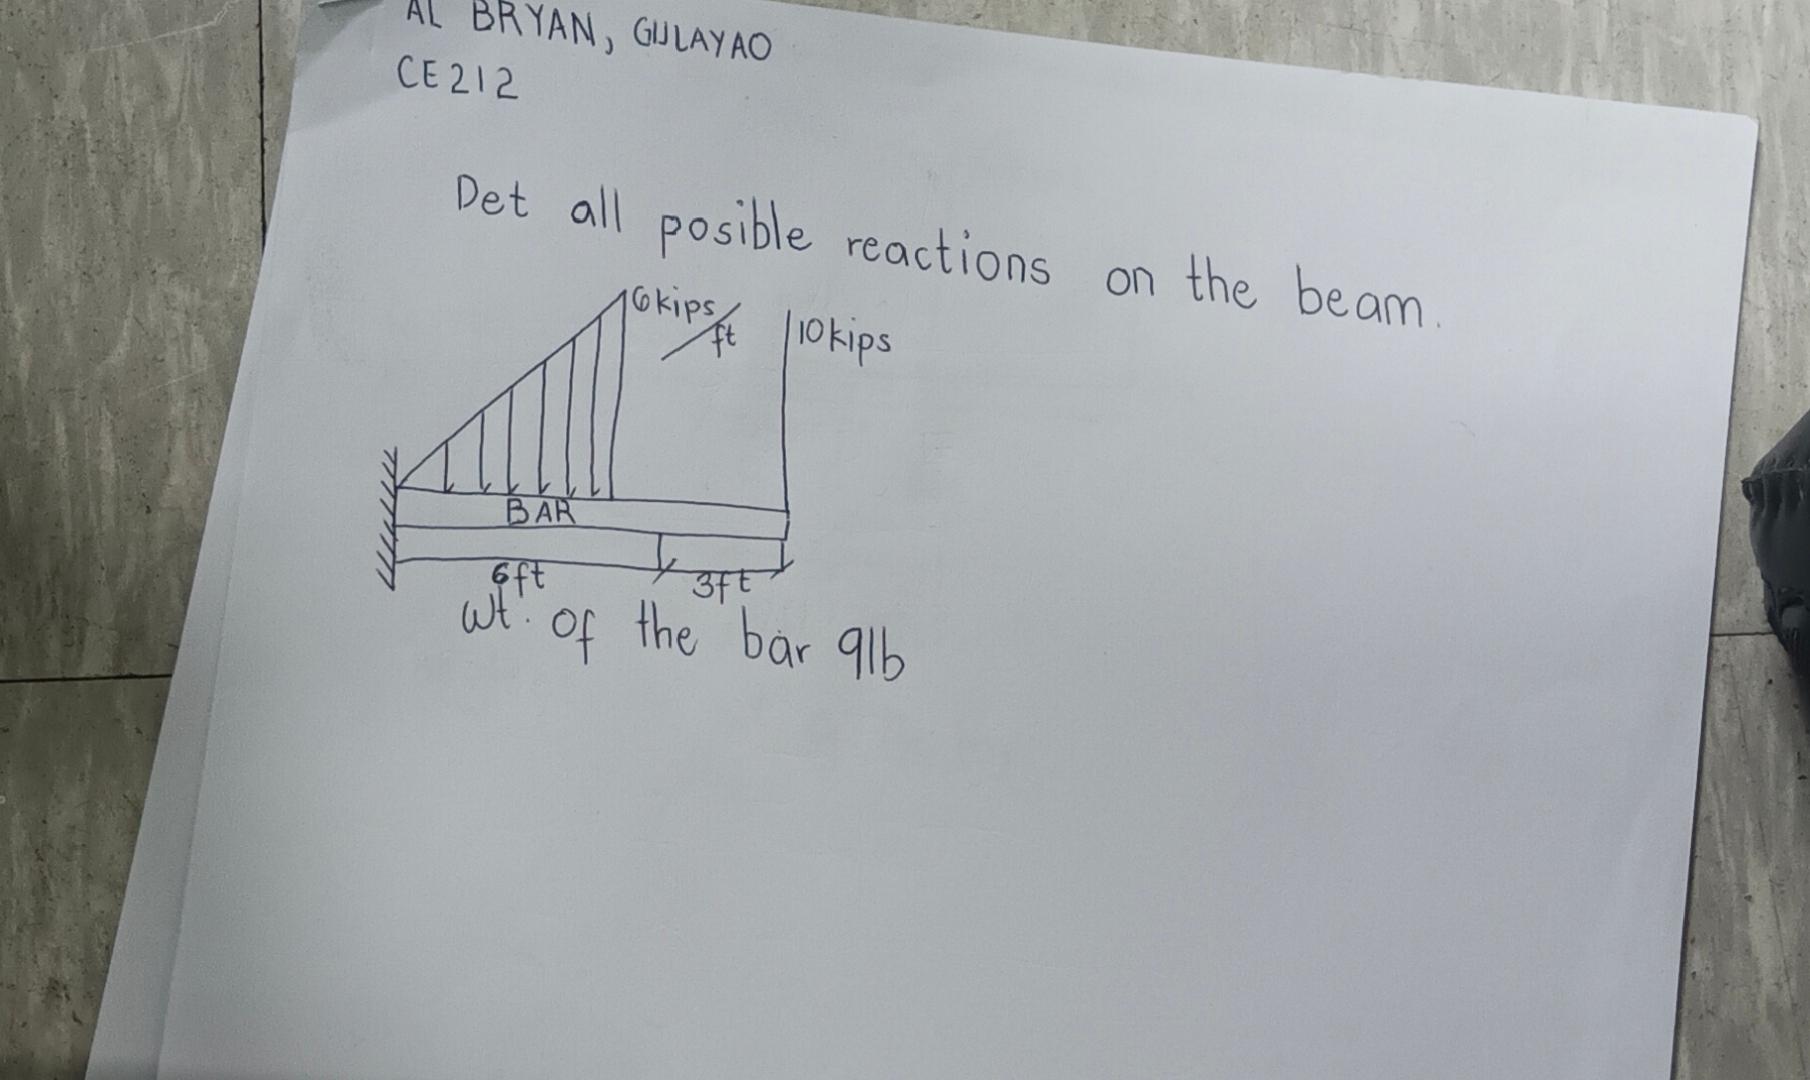 AL BRYAN, GULAYAO
CE212
Det all posible reactions on the beam.
6kips/ft
10kips
BAR
6ft
3ft
Wt. of the bar 9lb